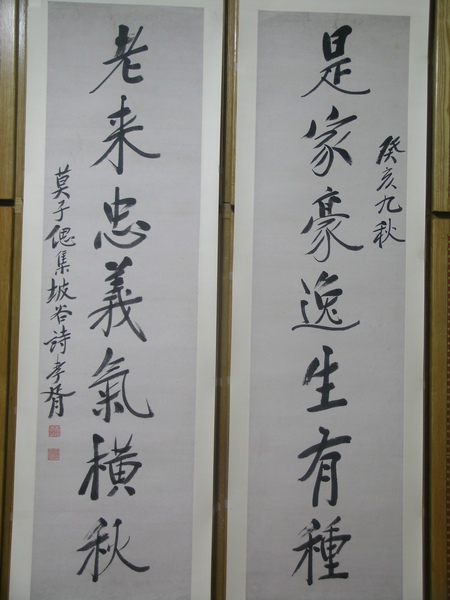 是家豪逸生有種
癸亥九秋
老来忠義氣橫秋
莫子偲集坡谷詩孝胥